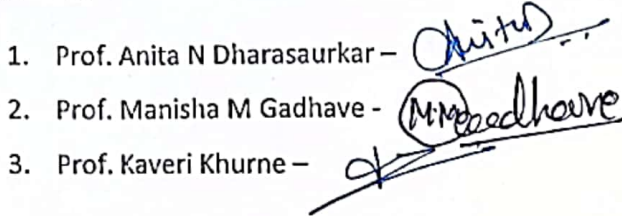 1. Prof. Anita N Dharasaurkar – Anita
2. Prof. Manisha M Gadhave - M.M.Gadhave
3. Prof. Kaveri Khurne –